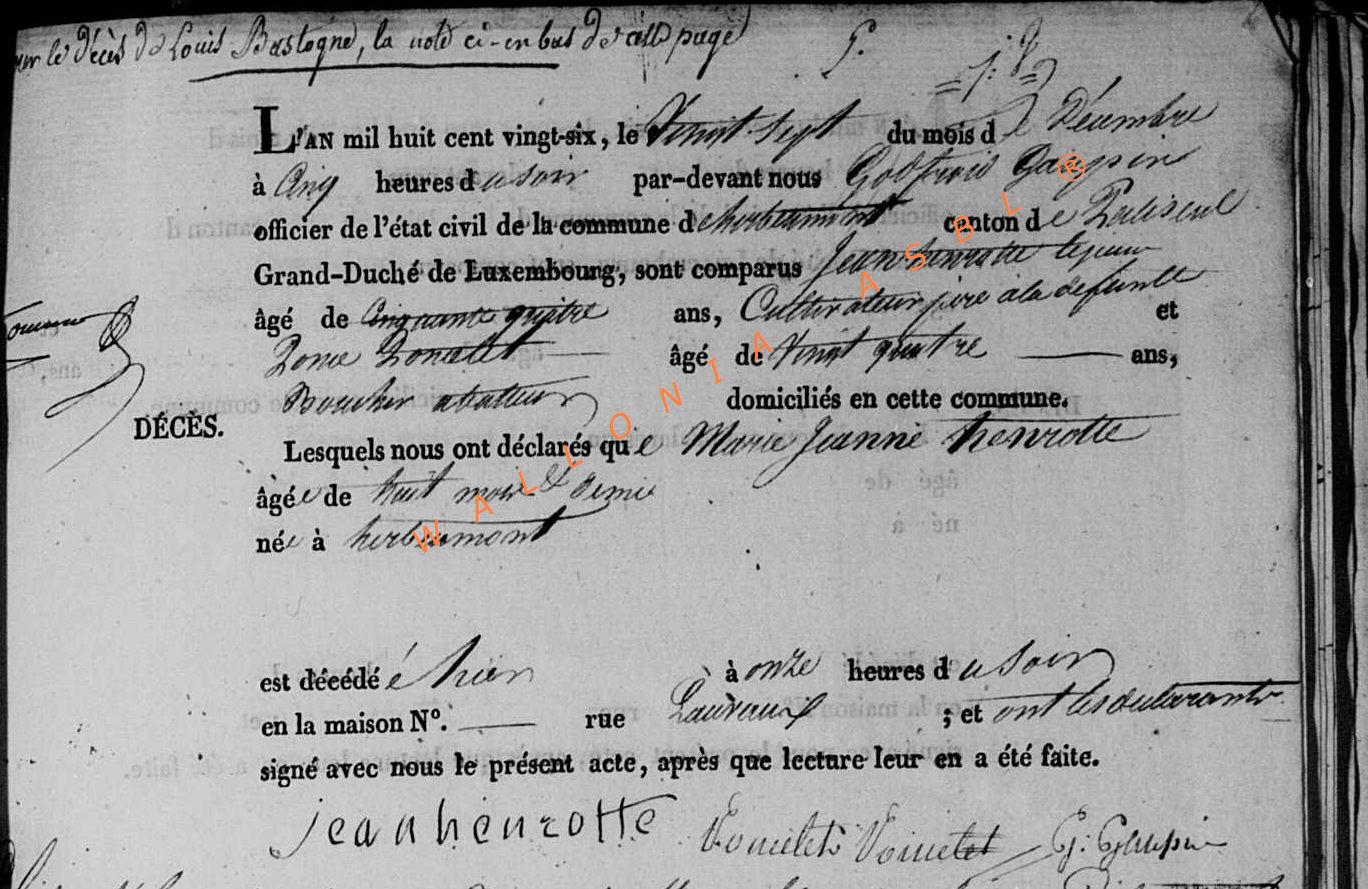 le décès de Louis Bastogne, la note ci-en bas de cette page
L'AN mil huit cent vingt-six, le Vingt Sept du mois de Décembre
à Cinq heures du soir par-devant nous Godfroid Gaupin
officier de l'état civil de la commune de herbeumont canton de Paliseul
Grand-Duché de Luxembourg, sont comparus Jean henrotte
âgé de Cinquante quatre ans, Cultivateur père a la defunte et
âgé de Vingt quatre ans,
Boucher domiciliés en cette commune.
DÉCÈS.
Lesquels nous ont déclarés que Marie Jeanne henrotte
âgée de huit mois et demie
née à herbeumont
est décédé é hier à onze heures du soir
en la maison N°. rue ; et ont les declarants
signé avec nous le présent acte, après que lecture leur en a été faite.
jean henrotte G. Gaupin
WALLONIA ASBL ®